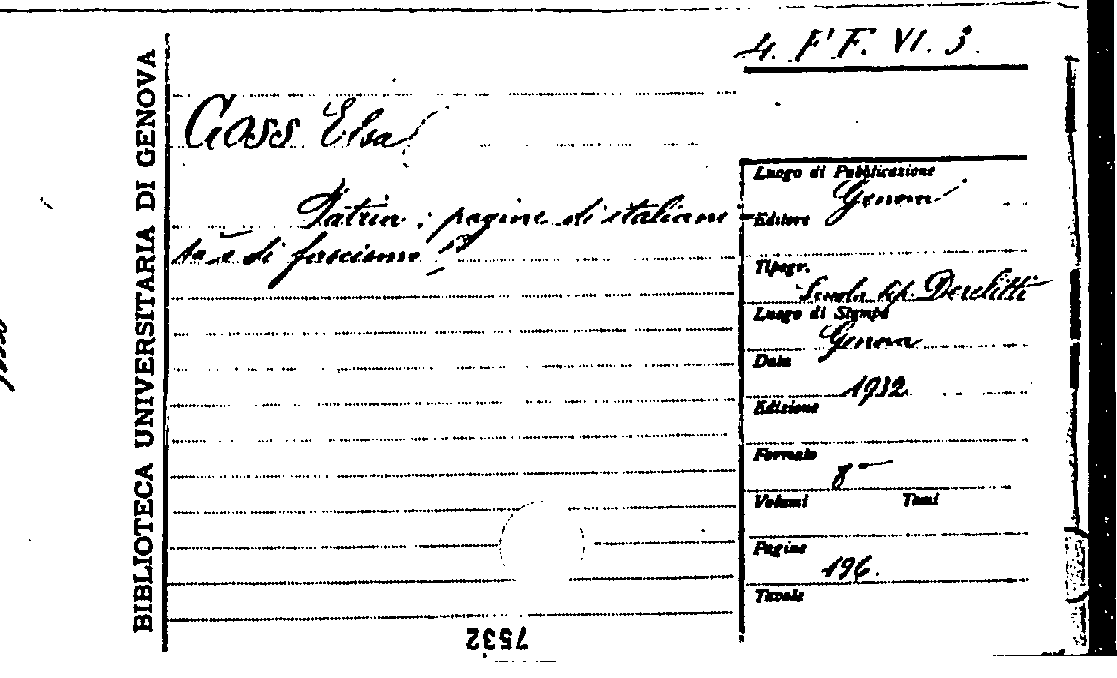 4. F F. VI. 3.
BIBLIOTECA UNIVERSITARIA DI GENOVA
Goss Elsa
Patria: pagine di italiani=
tà e di fascismo
Luogo di Pubblicazione
Genova
Editore
Tipogr.
Scuola tip. Derelitti
Luogo di Stampa
Genova
Data
1932
Edizione
Formato
8°
Volumi Tomi
Pagine
196.
Tavole
7532